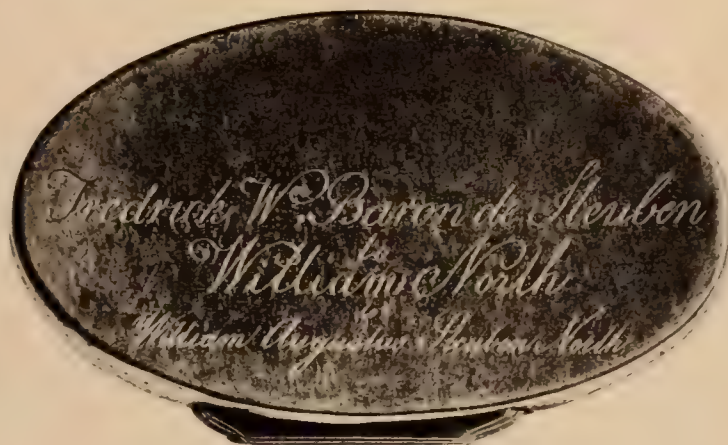 Fredrick W. Baron de Steuben
to
William North
to
William Augustus Steuben North